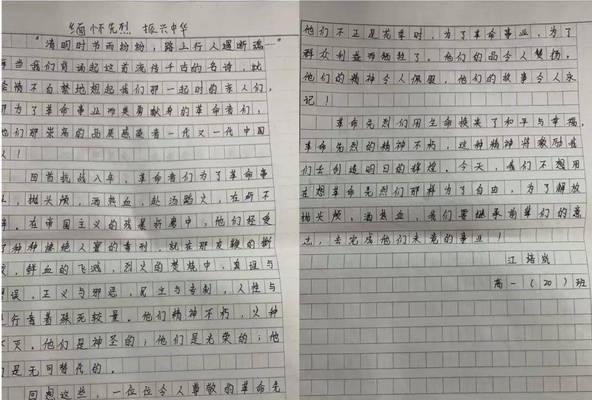 缅怀先烈 振兴中华
"清明时节雨纷纷，路上行人遇断魂
当我们背诵起这首流传千古的名诗，就
会情不自禁地想起我们那一起时的亲人们，
为了革命事业而英勇献身的革命者们，
他们那崇高的品质感染着一代又一代中国
人！
回首抗战八年，革命者们为了革命事
，抛头颅，洒热血，赴汤蹈火，在所不
辞，在帝国主义的残暴折磨中，他们经受
了种种惨绝人寰的毒刑，就在那皮鞭的抽
，鲜血的飞溅，烈火的焚烧中，真误与
误，正义与邪恶，民主与专制，人性与
行着殊死较量。他们精神不朽，火种
不灭。他们是神圣的；他们是光荣的；他
们是无可替代的。
回想这些，一位位令人尊敬的革命先
他们不正是花季时，为了革命事业，为了
群众利益而牺牲了。他们的品令人赞扬，
他们的精神令人佩服，他们的故事令人永
记！
革命先烈们用生命换来了和平与幸福。
革命先烈的精神不朽，这种精神将激励我
们去创造明日的辉煌。今天，我们不想用
在想革命先烈们那样为了自由，为了解放
抛头颅，洒热血，我们要继承前辈们的意
志，去完成他们未竟的事业！
江
高一（20）班